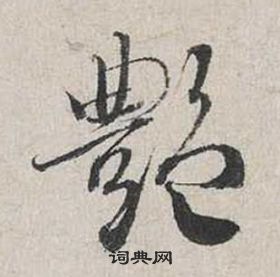 艷
词典网